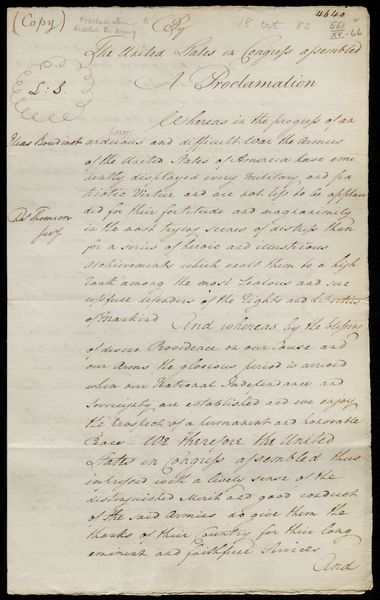 (Copy)
Proclamation to
disolve the army
By
18 Oct 83
4640
560
XV-66
The United States in Congress assembled
L: S.
A Proclamation
Whereas in the progress of an
Elias Boudinot
arduous and difficult War the Armies
of the United States of America have emi
nently displayed every military and pa
triotic Virtue and are not less to be applau
Chas Thomson
secy
ded for their fortitude and magnanimity
in the most trying scenes of distress than
for a series of heroic and illustrious
atchievements which exalt them to a high
rank among the most zealous and suc
cessfull defenders of the Rights and Liberties
of Mankind And whereas by the blessing
of divine Providence on our Cause and
our Arms the glorious period is arrived
when our National Independance and
Sovereignty are established and we enjoy
the prospect of a permanent and honorable
Peace - We therefore the United
States in Congress assembled thus
impressed with a lively sense of the
distinguished Merit and good conduct
of the said Armies do give them the
thanks of their Country for their long
eminent and faithfull Services
And